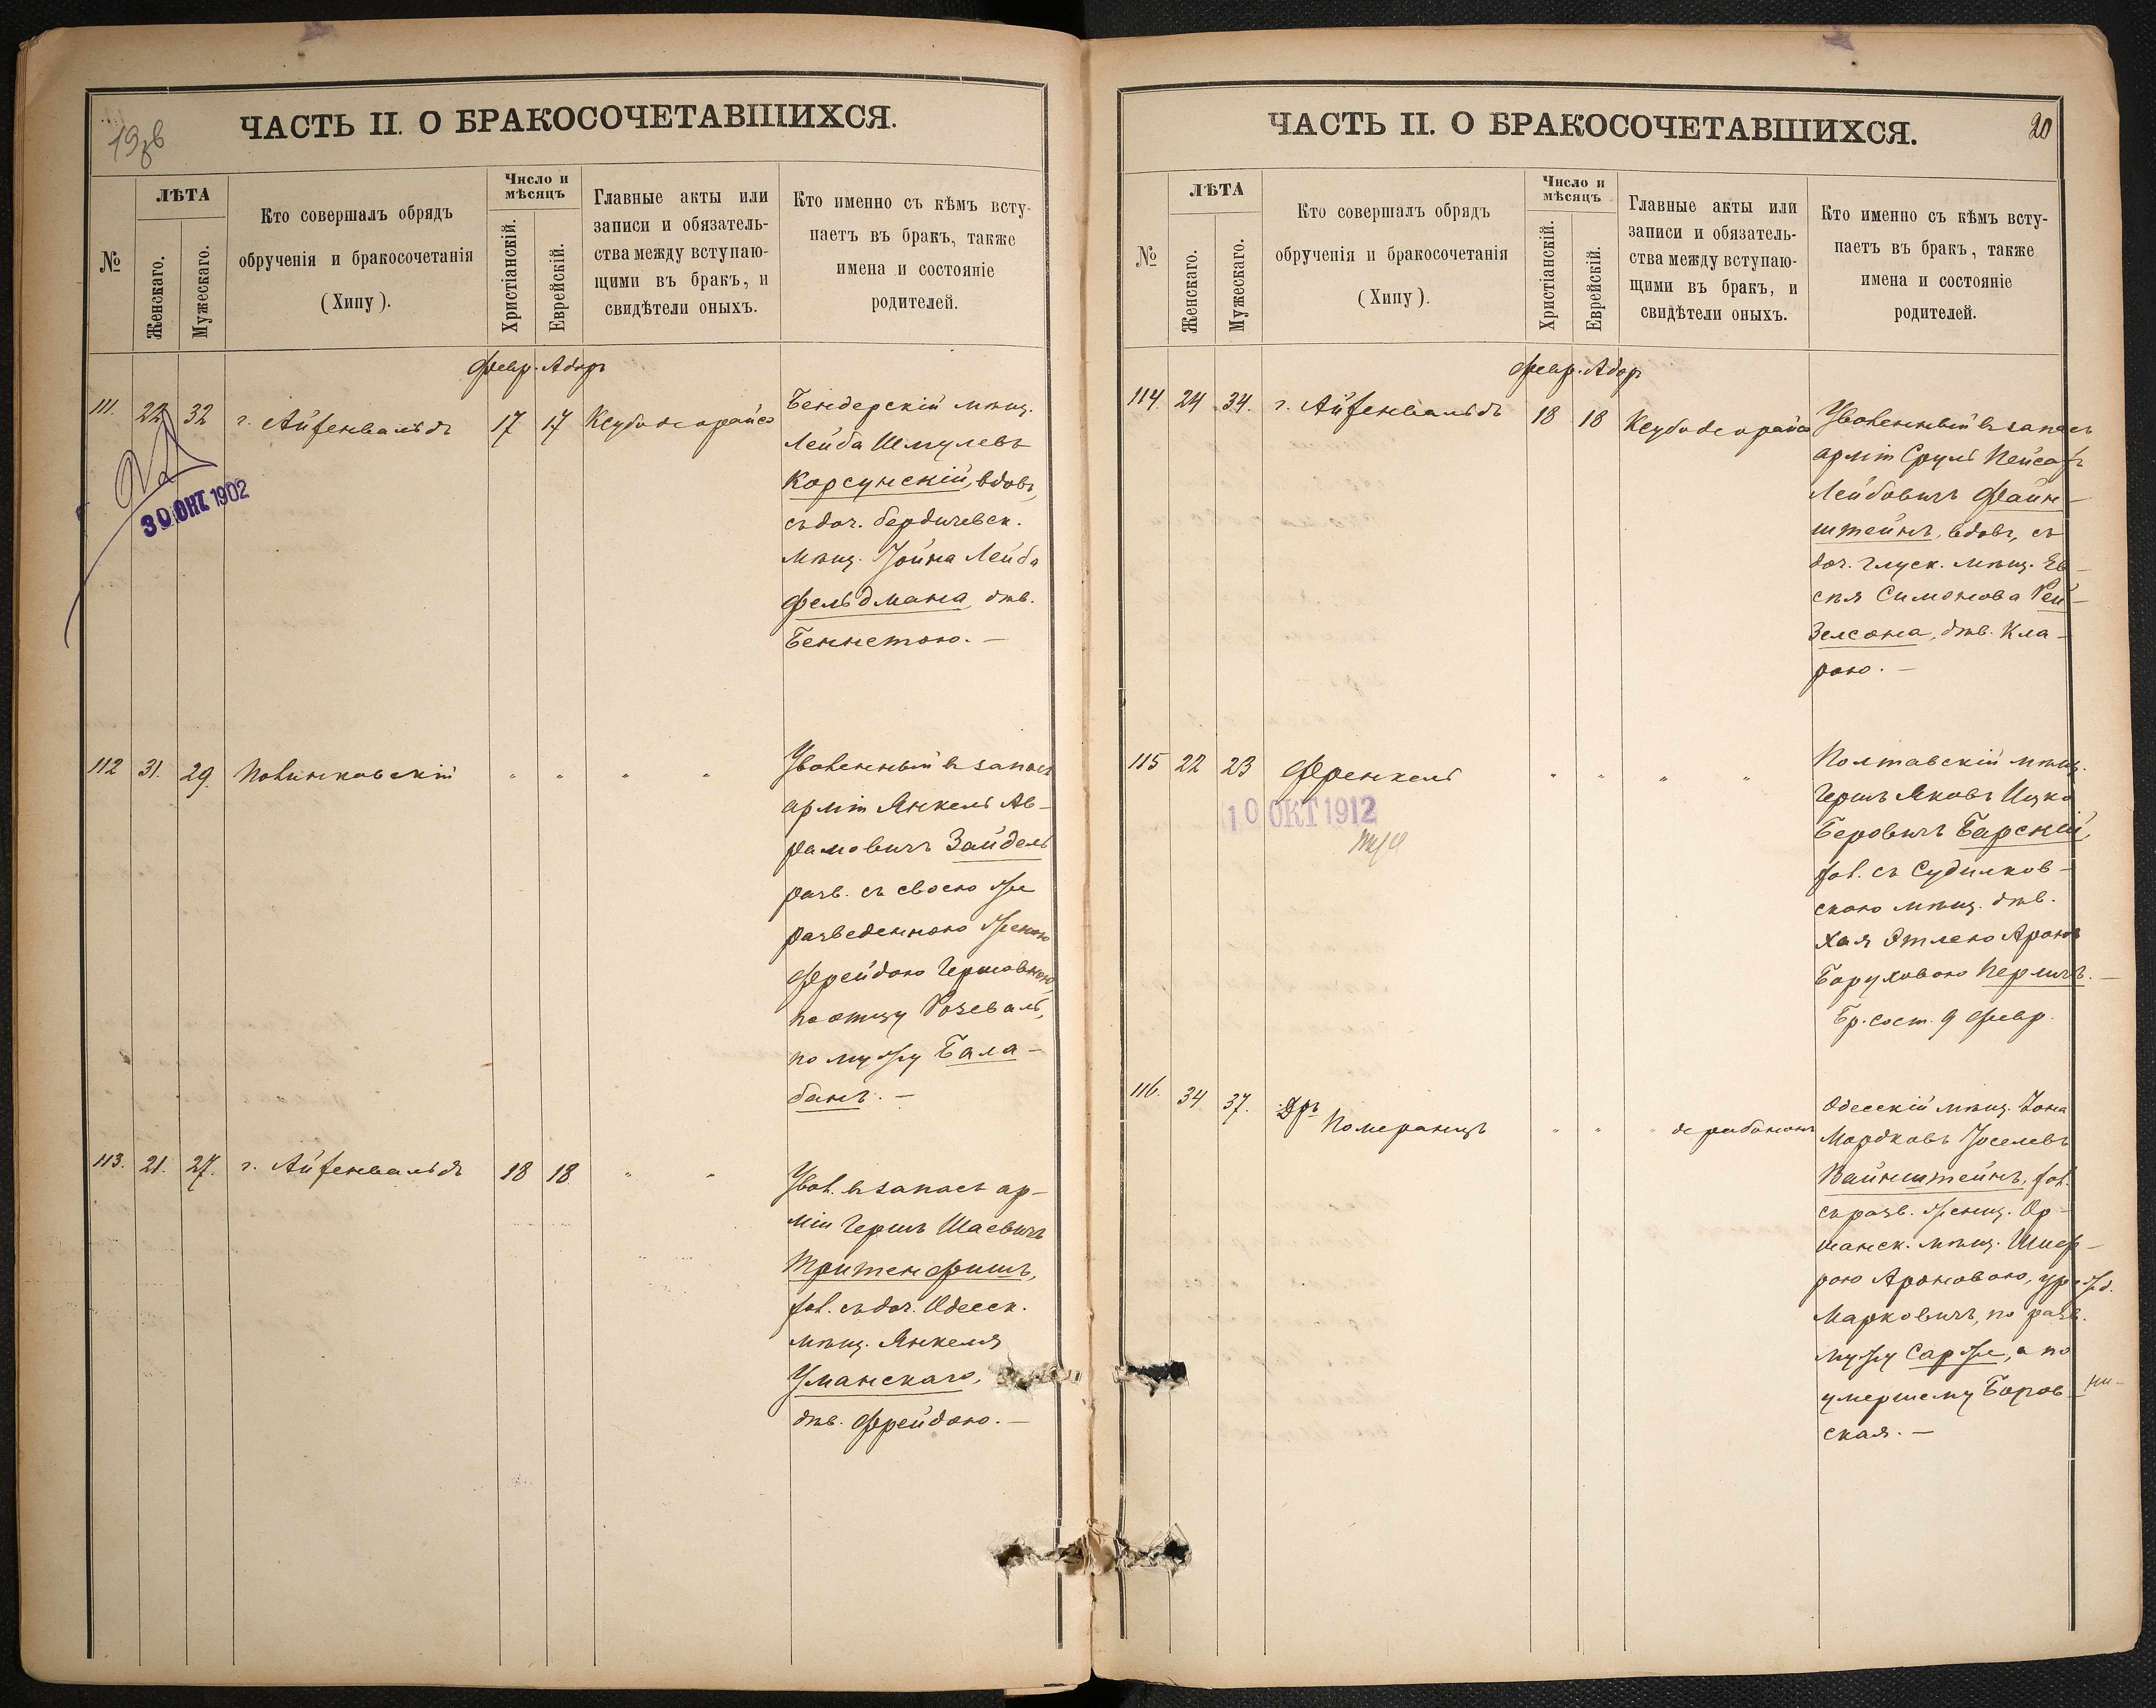 19об
ЧАСТЬ II. О БРАКОСОЧЕТАВШИХСЯ.
№
ЛѢТА
Женскаго.
Мужескаго.
Кто совершалъ обрядъ
обрученія и бракосочетанія
(Хипу).
Число и
мѣсяцъ
Христіанскій.
Еврейскій.
Главные акты или
записи и обязатель-
ства между вступаю-
щими въ бракъ, и
свидѣтели оныхъ.
Кто именно съ кѣмъ всту-
паетъ въ бракъ, также
имена и состояніе
родителей.
Февр. Адоръ
111. 22 32 г. Айзенвальдъ 17 17 Ксубо деорайсо
Бендерскій мѣщ.
Лейба Шмулевъ
Корсунскій, вдов,
съ доч. бердичевск.
мѣщ. Іойна Лейба
Фельдмана, дѣв.
Беннетою. —
30 ОКТ 1902
112 31. 29. Повинковскій " " " "
Уволенный въ запасъ
арміи Янкель Ав-
рамовичъ Зайдель
разв. съ своею же
разведенною женою
Фрейдою Гершовною,
по отцу Розеваль,
по мужу Бала-
банъ. —
113. 21. 27. г. Айзенвальдъ 18 18 " "
Увол. въ запасъ ар-
міи Гершъ Шаевичъ
Тритенфишъ,
хол. съ доч. Одесск.
мѣщ. Янкеля
Уманскаго,
дѣв. Фрейдою. —
ЧАСТЬ II. О БРАКОСОЧЕТАВШИХСЯ.
20
№
ЛѢТА
Женскаго.
Мужескаго.
Кто совершалъ обрядъ
обрученія и бракосочетанія
(Хипу).
Число и
мѣсяцъ
Христіанскій.
Еврейскій.
Главные акты или
записи и обязатель-
ства между вступаю-
щими въ бракъ, и
свидѣтели оныхъ.
Кто именно съ кѣмъ всту-
паетъ въ бракъ, также
имена и состояніе
родителей.
Февр. Адор
114. 24 34. г. Айзенвальдъ 18 18 Ксубо деорайсо
Уволенный въ запасъ
арміи Сруль Пейсахъ
Лейбовичъ Файн-
штейнъ, вдов, съ
доч. глуск. мѣщ. Ев-
сѣя Симонова Рей-
зелсона, дѣв. Кла-
рою. —
115 22 23 Френкель " " " "
10 ОКТ 1912
Полтавскій мѣщ.
Гершъ Яковъ Ицко
Беровичъ Барскій,
хол. съ Судилков-
скою мѣщ. дѣв.
Хая Этлею Ароно
Баруховою Перличъ. —
Бр. сост. 9 Февр.
116. 34 37. Дръ Померанцъ " " " де рабононъ
Одесскій мѣщ. Зона
Мордковъ Іоселевъ
Вайнштейнъ, хол.
съ разв. женщ. Ор-
шанск. мѣщ. Шиф-
рою Ароновою, урожд.
Марковичъ, по разв.
мужу Сарже, а по
умершему Боров-
ская. —